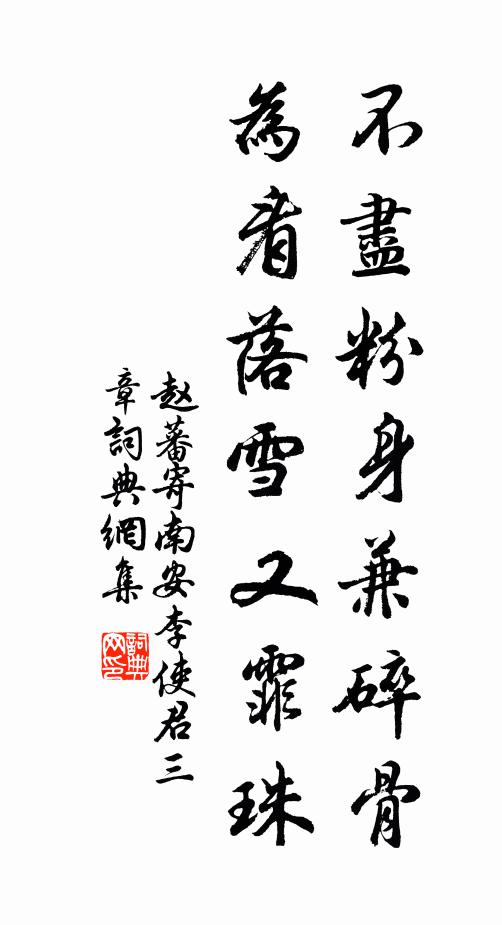 不盡粉身兼碎骨
為看落雪又霏珠
赵蕃寄南安李使君三
章詞典網集
詞典网印